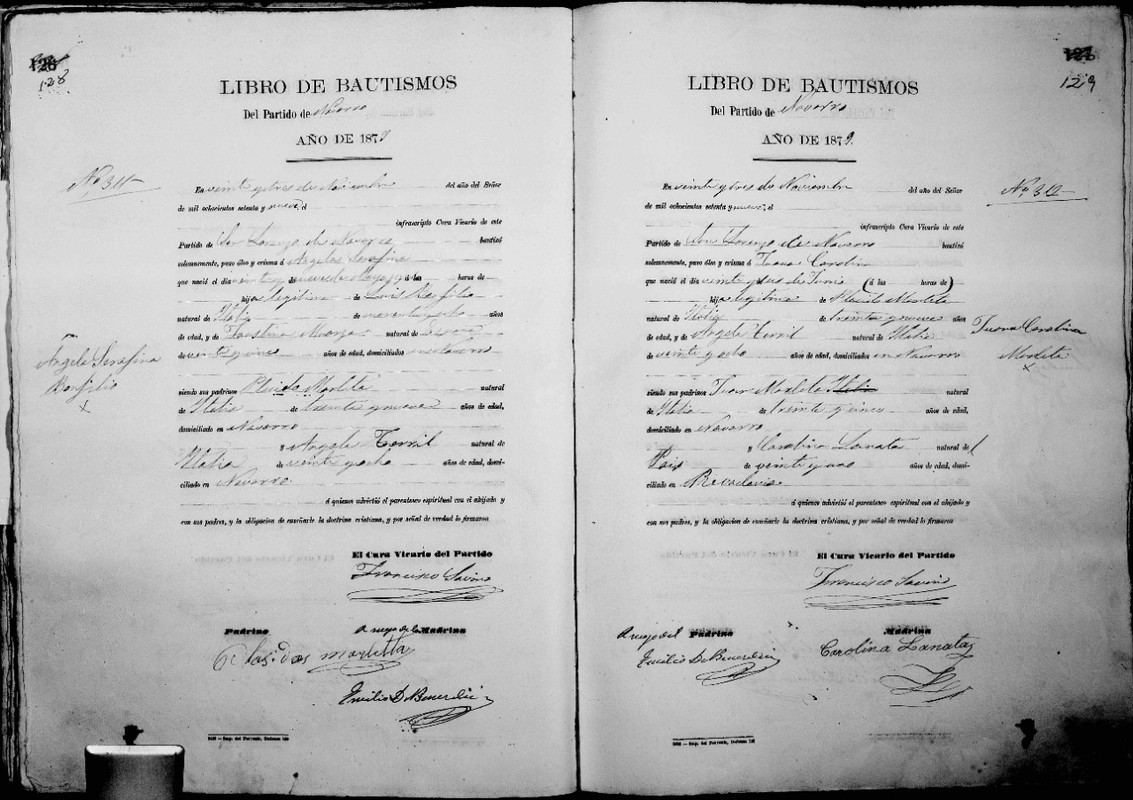 128
LIBRO DE BAUTISMOS
Del Partido de Navarro
AÑO DE 1879
Nº 311
En veinte y tres de Noviembre del año del Señor
de mil ochocientos setenta y nueve, el
infrascripto Cura Vicario de este
Partido de San Lorenzo de Navarro bautizó
solemnemente, puso óleo y crisma á Angela Serafina
que nació el dia veinte y nueve de Mayo á las horas de
hija legitima de Luis Bonfilio
natural de Italia de cuarenta y ocho años
de edad, y de Faustina natural de
de años de edad, domiciliados en Navarro
Angela Serafina
Bonfilio
x
siendo sus padrinos Placido Morleta natural
de Italia de treinta y nueve años de edad,
domiciliado en Navarro
y Angela Torril natural de
Italia de veinte y ocho años de edad, domi-
ciliado en Navarro
á quienes advirtió el parentesco espiritual con el ahijado y
con sus padres, y la obligacion de enseñarle la doctrina cristiana, y por señal de verdad lo firmaron
El Cura Vicario del Partido
Francisco Savino
Padrino
A ruego de la Madrina
Plasidos morletta
Emilio D. Benerdiz
129
LIBRO DE BAUTISMOS
Del Partido de Navarro
AÑO DE 1879.
Nº 312
En veinte y tres de Noviembre del año del Señor
de mil ochocientos setenta y nueve, el
infrascripto Cura Vicario de este
Partido de San Lorenzo de Navarro bautizó
solemnemente, puso óleo y crisma á Juana Carolina
que nació el dia veinte y dos de Junio (á las horas de)
hija legitima de Placido Morleta
natural de Italia de treinta y nueve años
de edad, y de Angela Torril natural de Italia
de veinte y ocho años de edad, domiciliados en Navarro
Juana Carolina
Morleta
x
siendo sus padrinos Juan Morleta Italia natural
de Italia de treinta y cinco años de edad,
domiciliado en Navarro
y Carolina Lanata natural del
Pais de veinte y años de edad, domi-
ciliado en
á quienes advirtió el parentesco espiritual con el ahijado y
con sus padres, y la obligacion de enseñarle la doctrina cristiana, y por señal de verdad lo firmaron
El Cura Vicario del Partido
Francisco Savino
A ruego del Padrino
Emilio D. Benerdiz
Madrina
Carolina Lanata